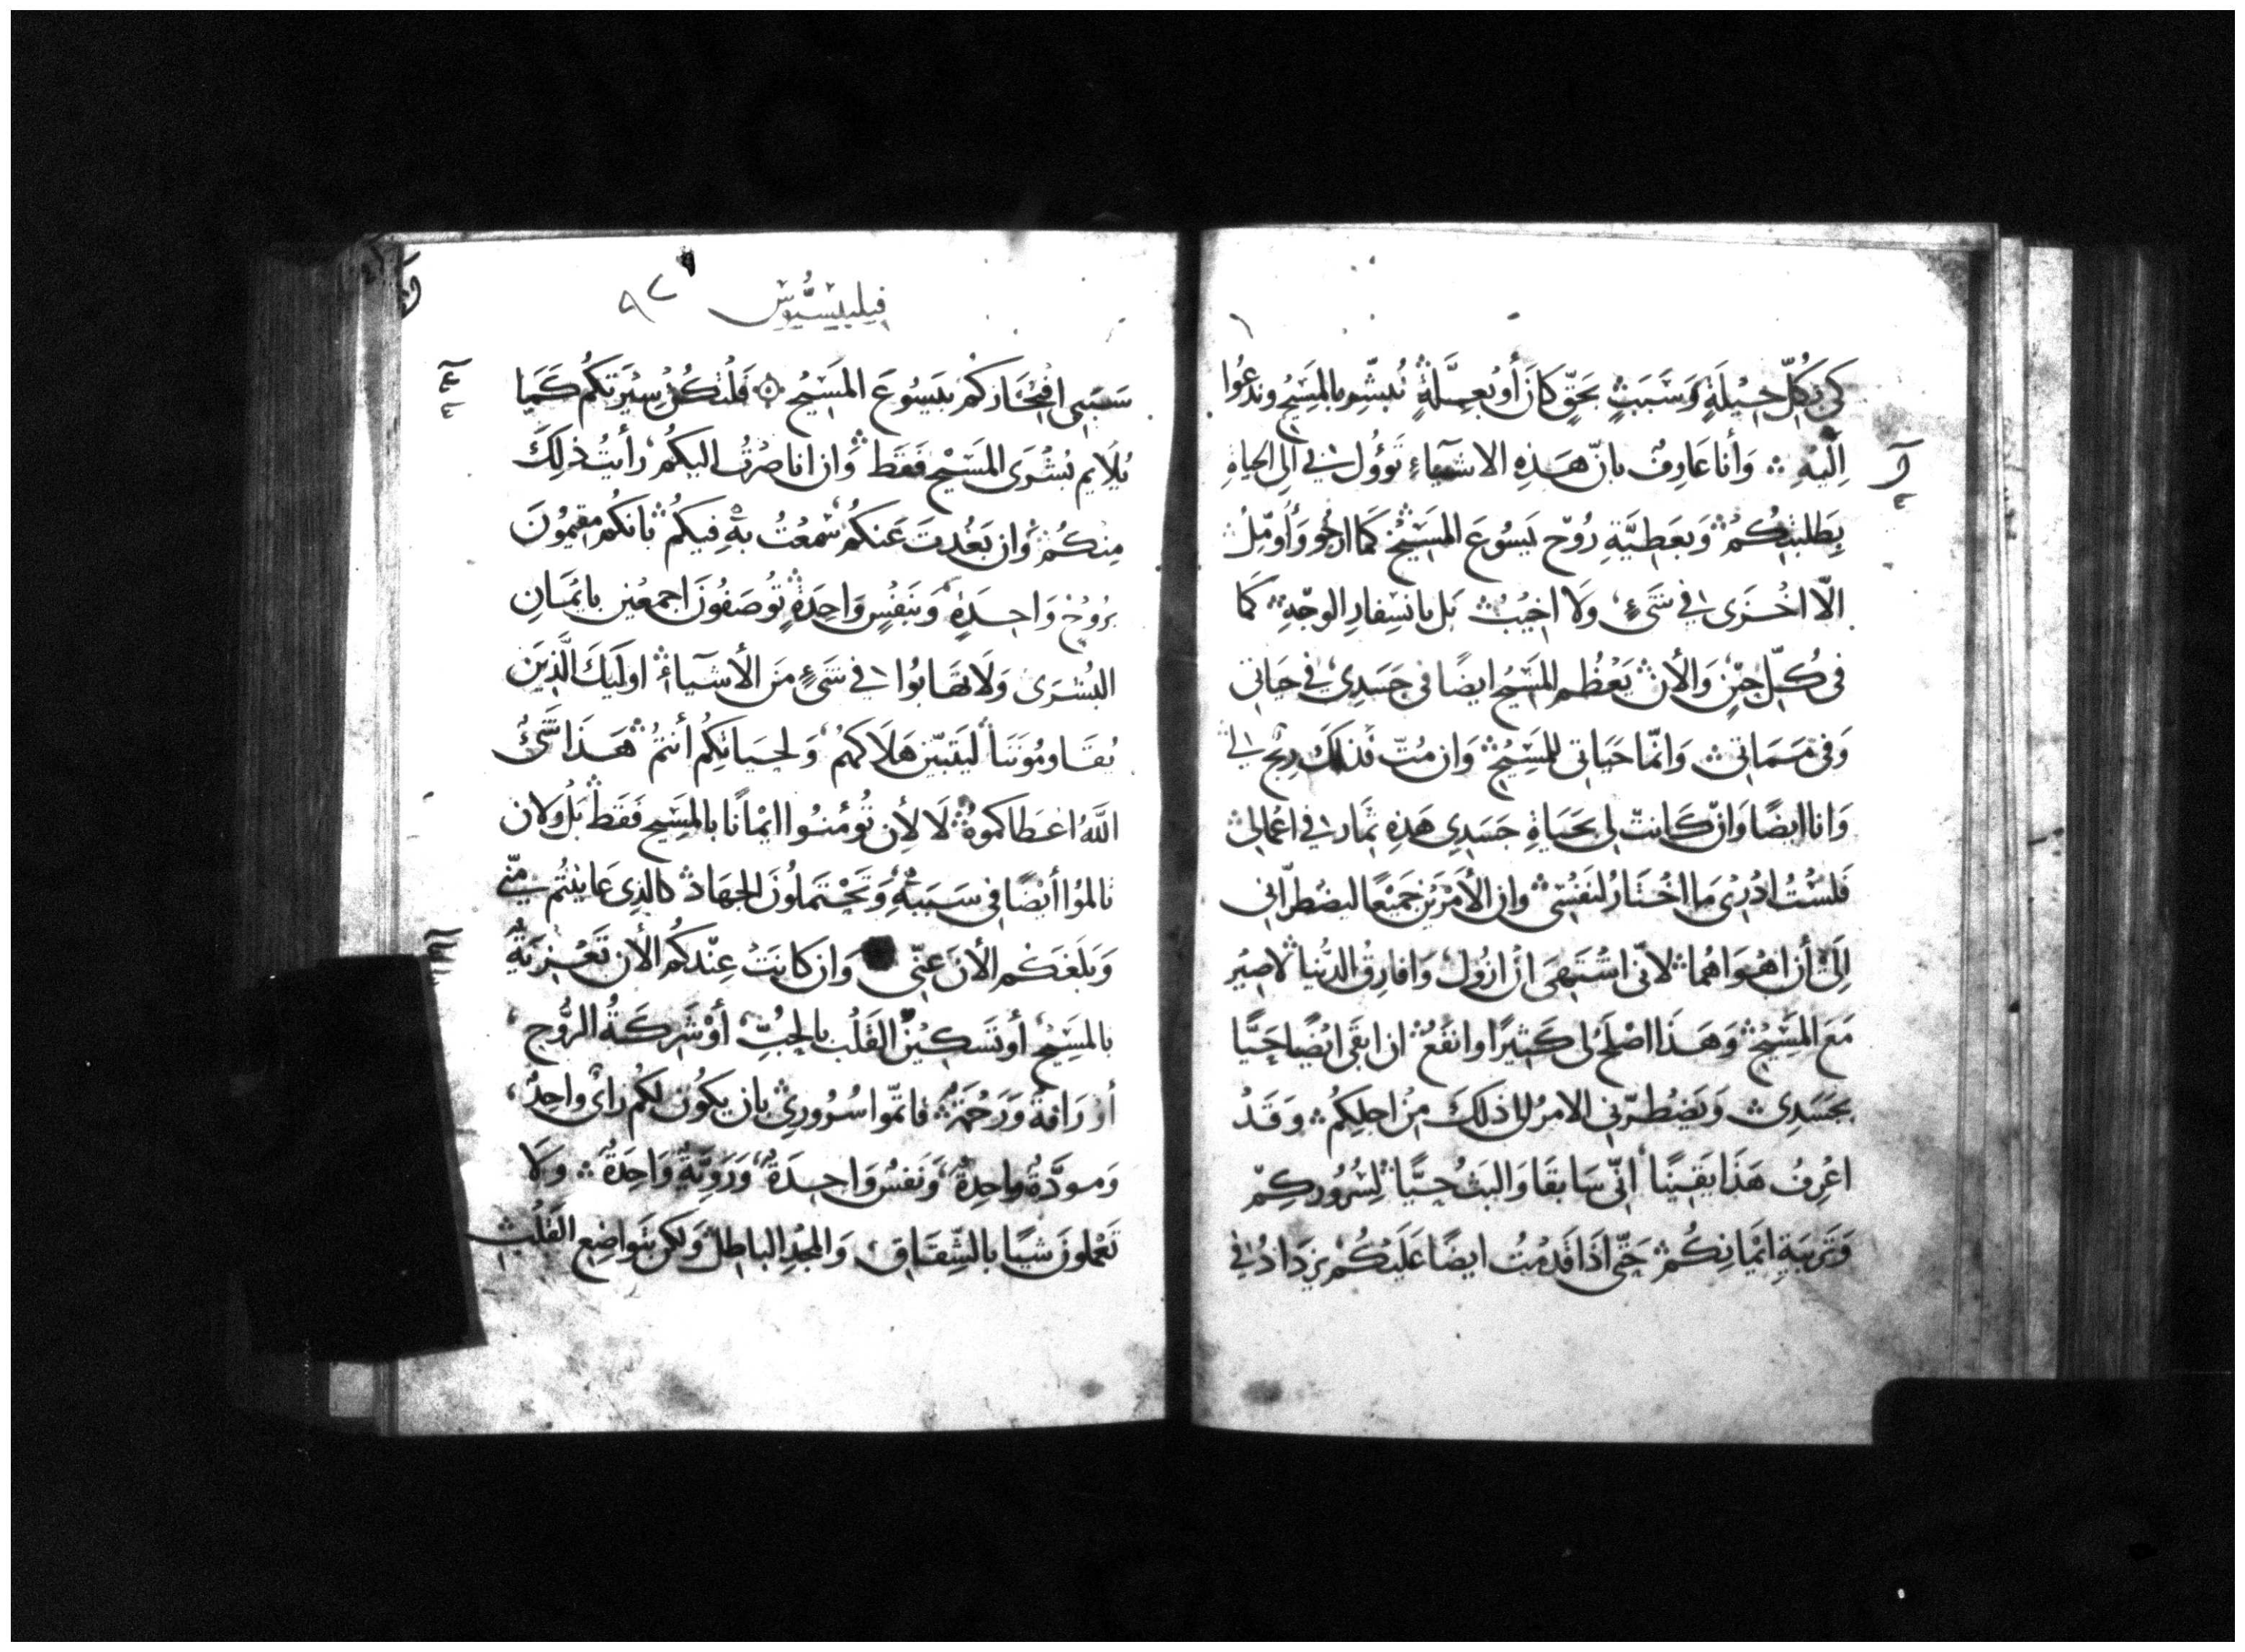 كي بكلّ حِيْلَةٍ وَسَبَبٍ بحَقٍّ كانَ أو بعِلَّةٍ نُبشّر بالمَسِيْح وندعُوا
اِلَيْهِ ۞ وَأنا عَارِفٌ بانّ هَذِهِ الاشيَآءِ تَؤُول لي اِلى الحياةِ
بِطَلِبتِكُمْ وَبعَطِيَّةِ رُوْح يَسُوعَ المَسِيْح كَمَا ارجُو وَأُؤمِّلُ
الّا اخْزَى في شَيْءٍ وَلَا اخِيْبُ بَل بانسِفارِ الوجْهِ كَمَا
في كُلّ حِيْنٍ وَالأنَ يَعْظُم المَسِيْح ايضًا في جَسَدِي في حيَاتي
وَفي مَمَاتي وَانّما حَيَاتي للمَسِيْح وَان مُتّ فذلِكَ رِبْح لي
وَانا ايضًا وَانْ كَانت لي بحَيَاةِ جَسَدِي هَذِهِ ثمَار في اعْمَالِي
فَلَسْتُ ادْرِي مَا اخْتَارُ لنَفْسِي وَانِ الأمْرَيْن جَمِيْعًا ليضْطرّاني
اِلَى أن اهْوَاهُما لانّي اشتَهِيَ انْ ازُول وَافارِقُ الدُّنيا لاصِيْر
مَعَ المَسِيْح وَهَذَا اصْلَح لي كَثِيْرًا وانفَعُ ان ابقَى ايْضًا حَيًّا
بجَسَدِي وَيَضْطرّني الامرُ الى ذلِكَ مِنْ اجلِكُم وَقَدْ
اعْرِفُ هَذَا يَقِيْنًا انّي سَابقَا وَالبَثُ حيًّا لسُرُورِكِمْ
وَتَربيَةِ ايْمَانِكُمْ حَتّى اذَا قَدِمْتُ ايضًا عَلَيْكُمْ يزدَادُ في
فيليبسيوس
سَبَبي افتِخَاركُم بيَسُوعَ المَسِيْح ۞ فَلْتكُنْ سِيْرَتكُم كَمَا
يُلَايم بُشْرَى المَسِيْح فَقَط وَان انا صِرْتُ اليكُم رأيتُ ذلِكَ
مِنكُمْ وَان بَعُدتَ عَنكُم سَمعْتُ بهِ فِيكُم بانكُم مقِيْمُونَ
برُوْحٍ وَاحِدَةٍ وَبنَفْسٍ وَاحِدَةٍ تُوصَفُونَ اجمعِيْن بايمَانِ
البُشْرَى وَلَا تهَابُوا في شَيْءٍ مِنَ الأشيَآءِ اولَيكَ الَّذِيَن
يُقَاومُونَنَا ليَتبَيّن هَلَاكهُمْ وَلحيَاتِكُم أنتُمْ هَذَا شَيْءٌ
اللّهُ اعْطَاكموهُ لَا لأن تُؤمنُوا ايْمانًا بالمَسِيْح فَقَط بَلْ وَلان
تالمُوا أيْضًا في سَبَبهِ وَتَحْتَملُونَ الجهَادَ كالذِي عَاينتُم منّي
وَبَلَغَكُم الأنَ عَنّي وَان كانَتْ عِنْدكُم الأن تَعْزِيَةٌ
بالمَسِيْح أو تَسكِيْن القَلْب بالحُبّ أوْ شَركَةُ الرُّوح
أوْ رَافةٌ وَرَحْمَةٌ فاتمّوا سُرُورِي بان يكُون لكُم رايٌ واحِدٌ
وَمودَّةٌ وَاحِدَةٌ وَنَفْسٌ وَاحِدَةٌ وَرَوِيّةٌ وَاحِدَةٌ وَلَا
تَعْملونَ شيئًا بالشّقَاقِ وَالمجْدِ البَاطِل وَلكن بتَواضِع القَلْبِ